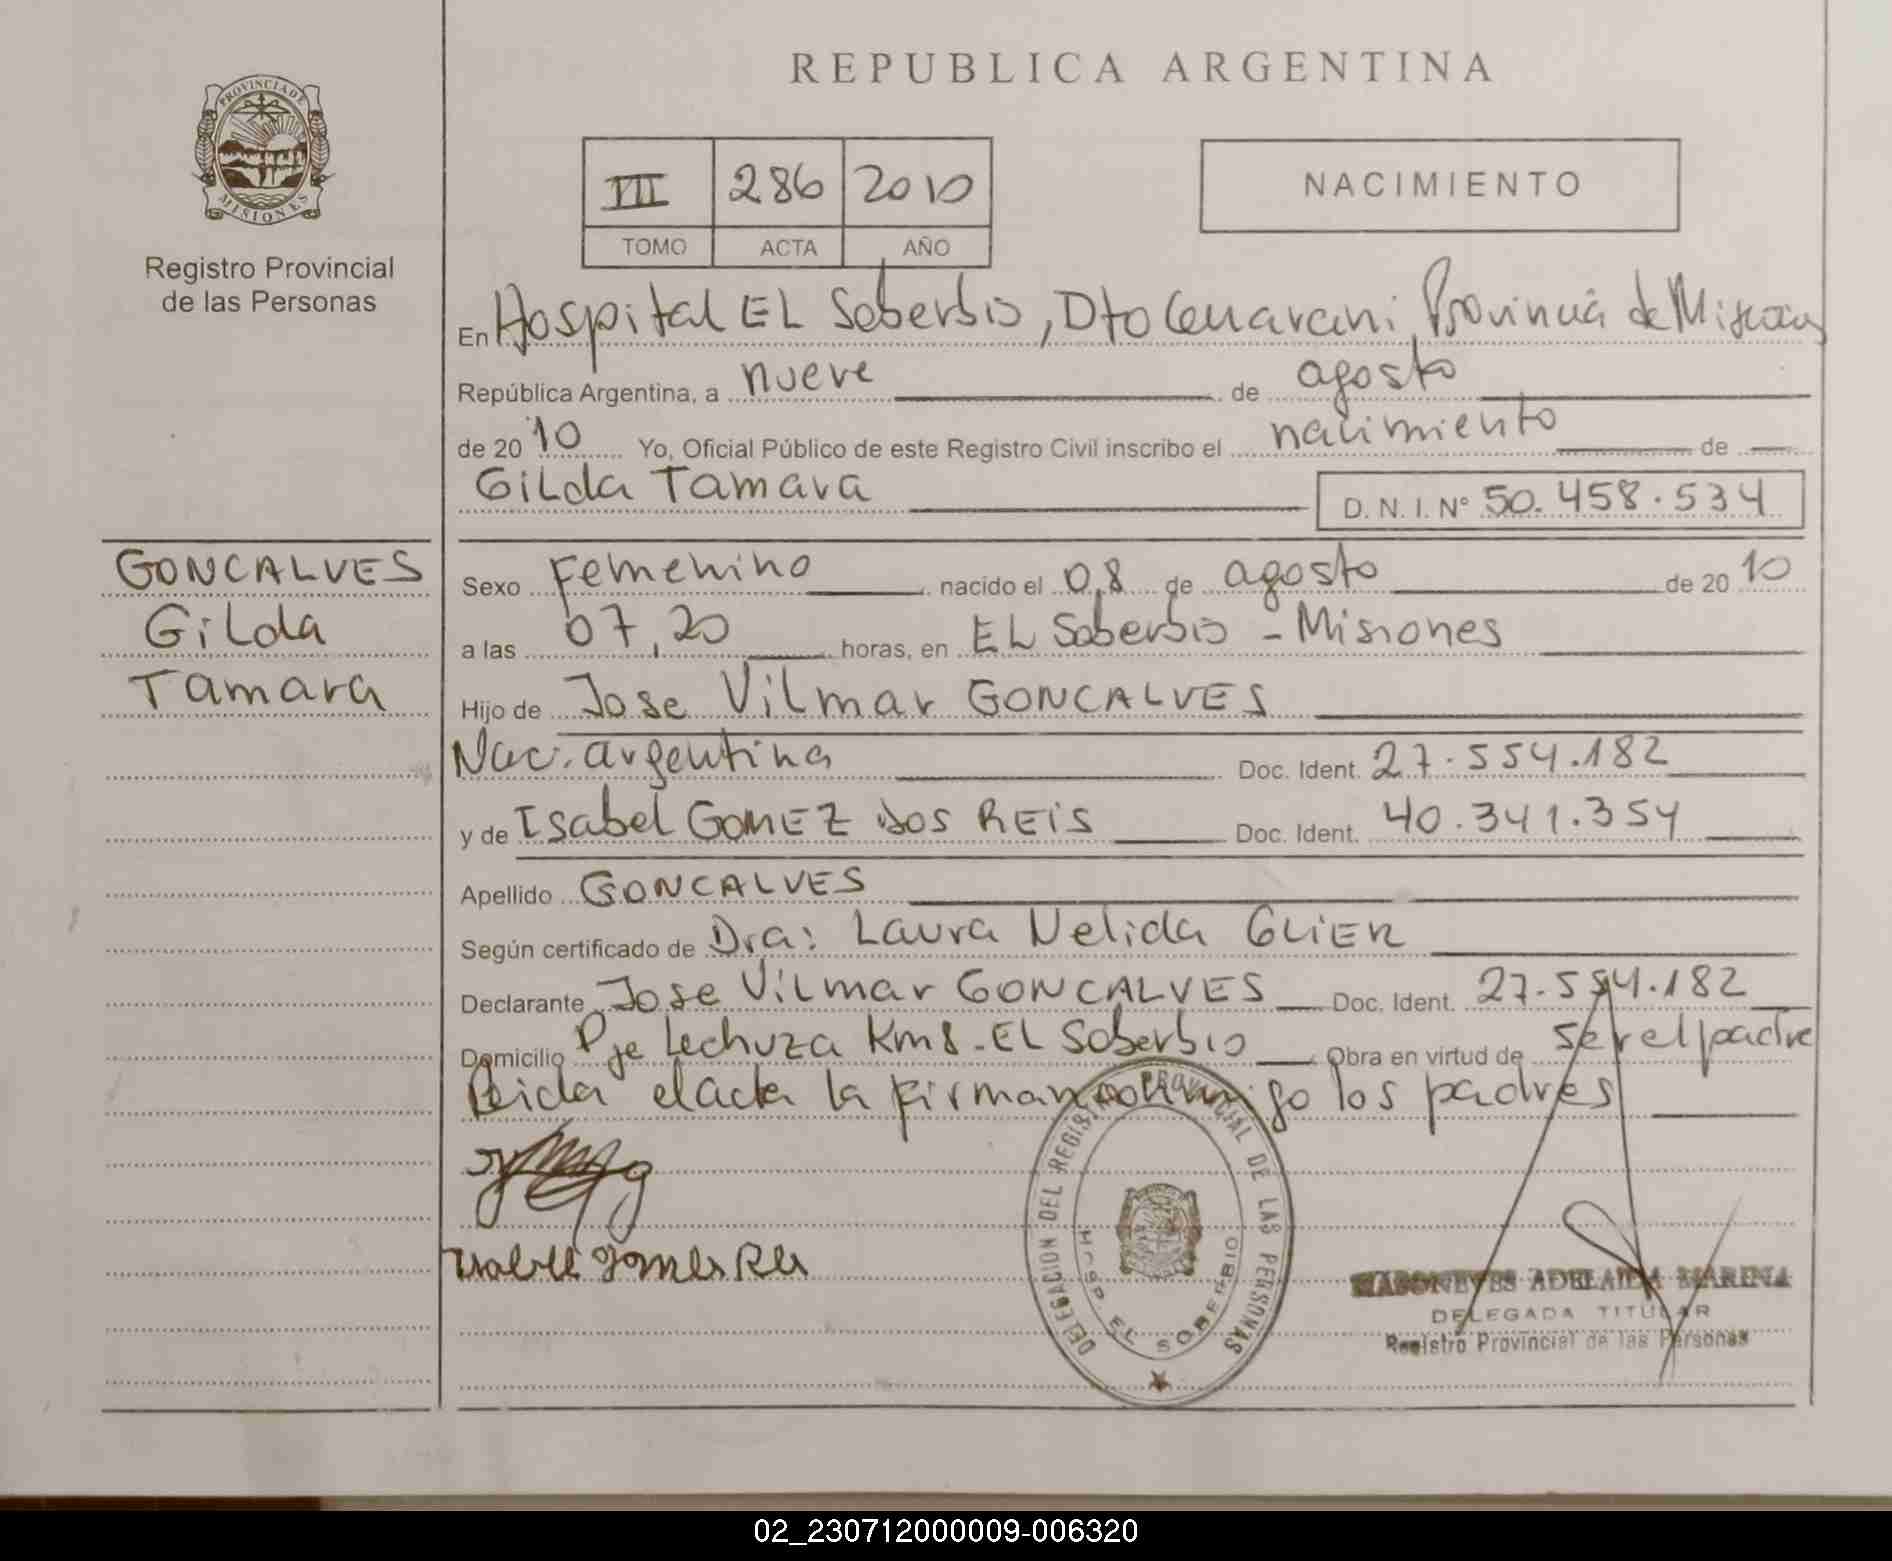 REPUBLICA ARGENTINA
PROVINCIA DE MISIONES
Registro Provincial
de las Personas
VII 286 2010
TOMO ACTA AÑO
NACIMIENTO
En Hospital EL Soberbio, Dto Guarani Provincia de Misiones
República Argentina, a nueve de agosto
de 2010 Yo, Oficial Público de este Registro Civil inscribo el nacimiento de
Gilda Tamara D. N. I. Nº 50.458.534
GONCALVES
Gilda
Tamara
Sexo Femenino nacido el 08 de agosto de 2010
a las 07,20 horas, en EL Soberbio - Misiones
Hijo de Jose Vilmar GONCALVES
Nac. argentina Doc. Ident. 27.554.182
y de Isabel GOMEZ DOS REIS Doc. Ident. 40.341.354
Apellido GONCALVES
Según certificado de Dra: Laura Nelida GLIER
Declarante Jose Vilmar GONCALVES Doc. Ident. 27.554.182
Domicilio Pje Lechuza Km8 - EL Soberbio Obra en virtud de ser el padre
Leida el acta la firman conmigo los padres
DELEGACION DEL REGISTRO PROVINCIAL DE LAS PERSONAS
HOSP. EL SOBERBIO
ADELAIDA MARINA
DELEGADA TITULAR
Registro Provincial de las Personas
02_230712000009-006320